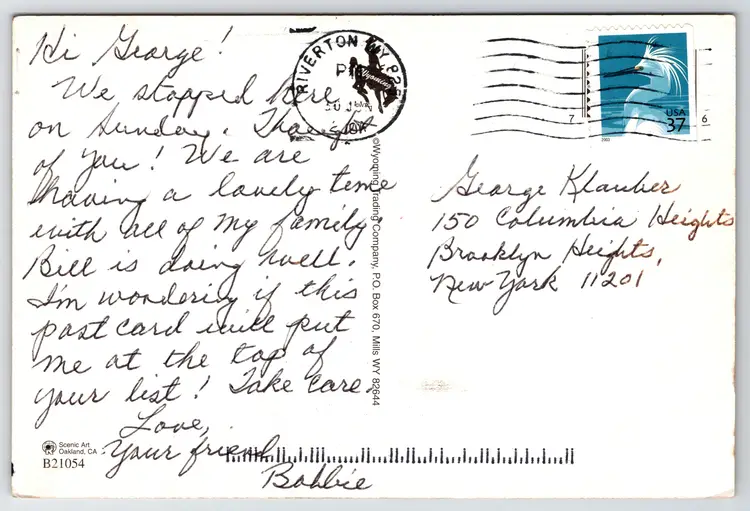 Hi George!
We stopped here
on Sunday. Thought
of you! We are
having a lovely time
with all of my family.
Bill is doing well.
I'm wondering if this
post card will put
me at the top of
your list! Take care.
Love,
Your friend
Bobbie
Scenic Art
Oakland, CA
B21054
RIVERTON WY 825
PM
Wyoming
©Wyoming Trading Company, P.O. Box 670, Mills WY 82644
USA
37
7
6
George Klauber
150 Columbia Heights
Brooklyn Heights,
New York 11201